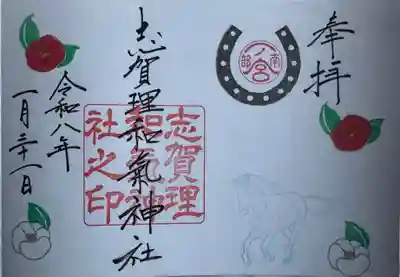 奉拝
南部
一ノ宮
志賀理和氣神社
志賀理
和氣神
社之印
令和八年
一月三十一日